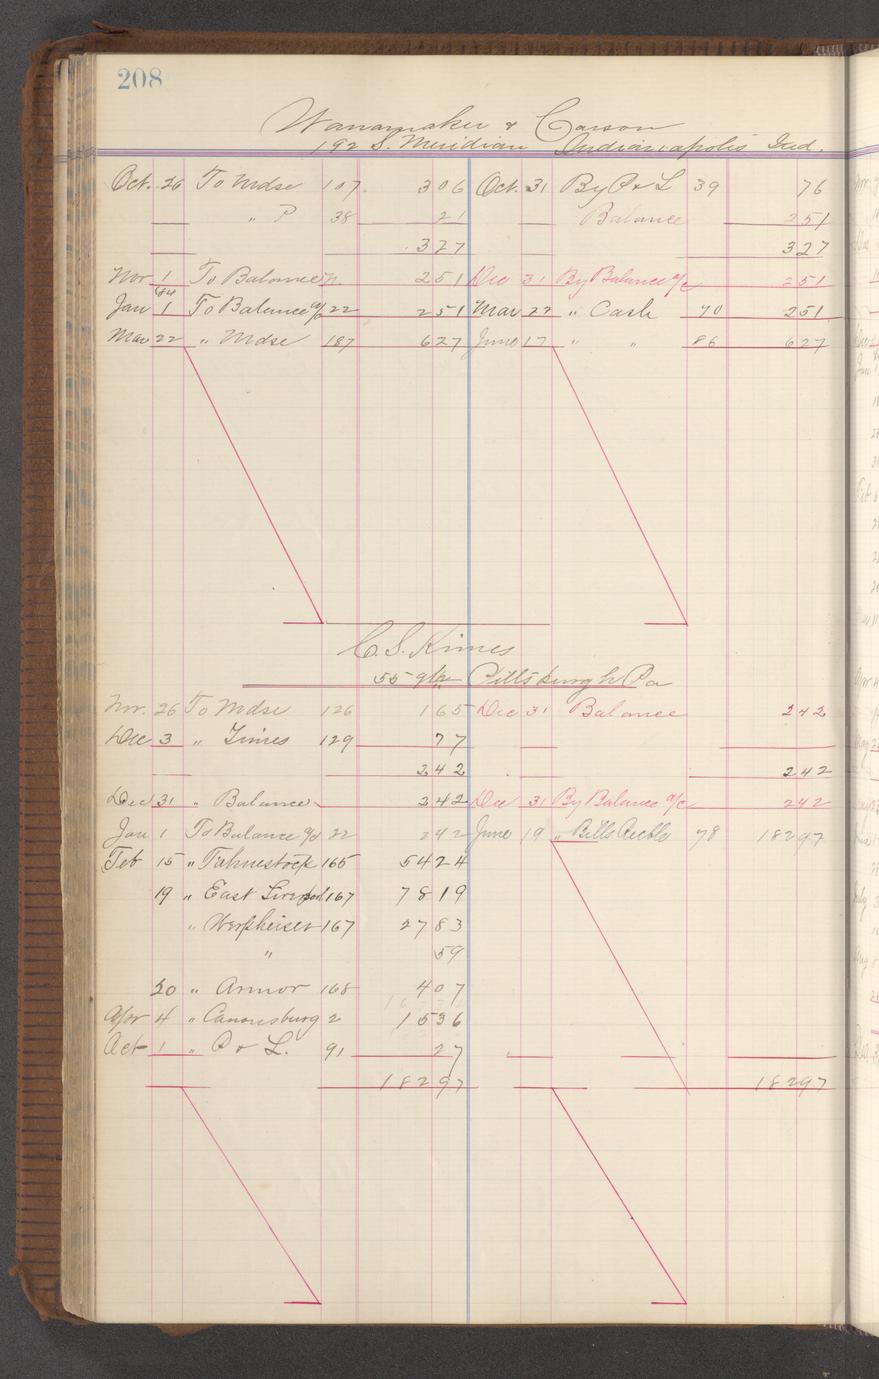 208
Wanamaker & Carson
192 S. Meridian Indianapolis Ind.
Oct. 26 To Mdse 107 306 Oct. 31 By P & L 39 76
" P 38 21 Balance 251
327 327
Nov 1 To Balance 251 Dec 31 By Balance a/c 251
84
Jan 1 To Balance a/c 22 251 Mar 22 " Cash 70 251
Mar 22 " Mdse 187 627 June 17 " " 86 627
C. S. Kimes
55 9th Pittsburgh Pa
Nov. 26 To Mdse 126 165 Dec 31 Balance 242
Dec 3 " Times 129 77
242 242
Dec 31 " Balance 242 Dec 31 By Balance a/c 242
Jan 1 To Balance a/c 22 242 June 19 " Bills Recble 78 18297
Feb 15 " Fahnestock 165 5424
19 " East Liverpool 167 7819
" 167 2783
" 59
20 " Armor 168 407
Apr 4 " Canonsburg 2 1536
Oct 1 " P & L. 91 27
18297 18297